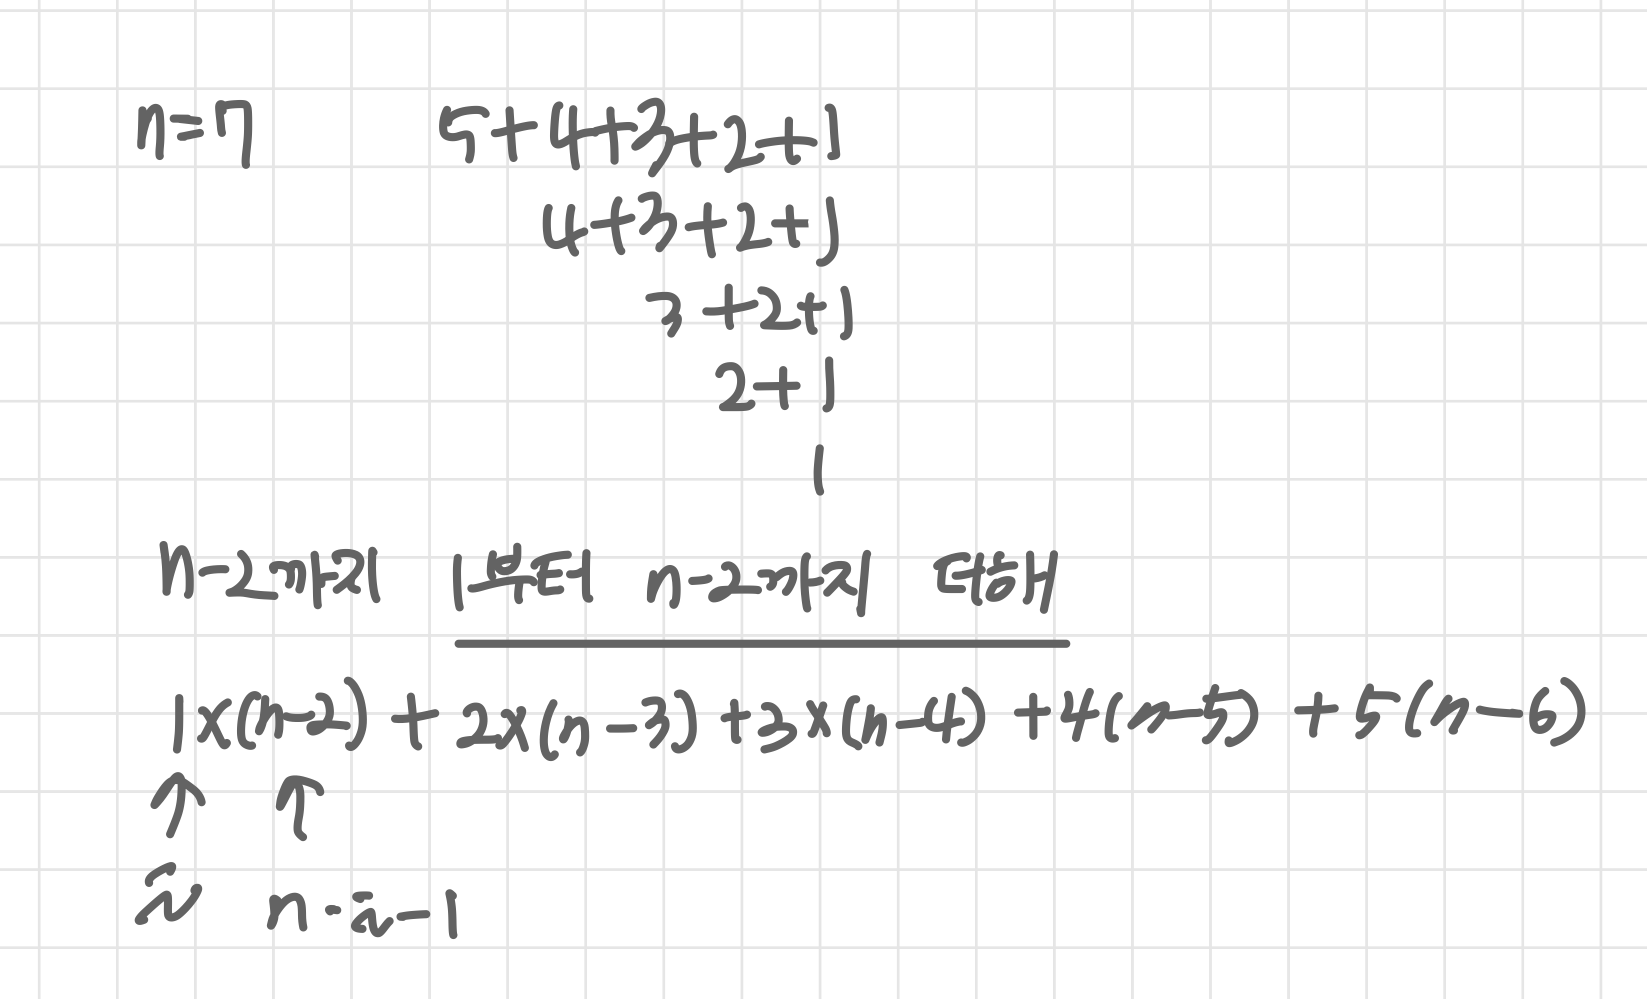 n=7 5+4+3+2+1
4+3+2+1
3+2+1
2+1
1
n-2까지 1부터 n-2까지 더해
1×(n-2) + 2×(n-3) +3×(n-4) +4(n-5) +5(n-6)
↑ ↑
i n-i-1